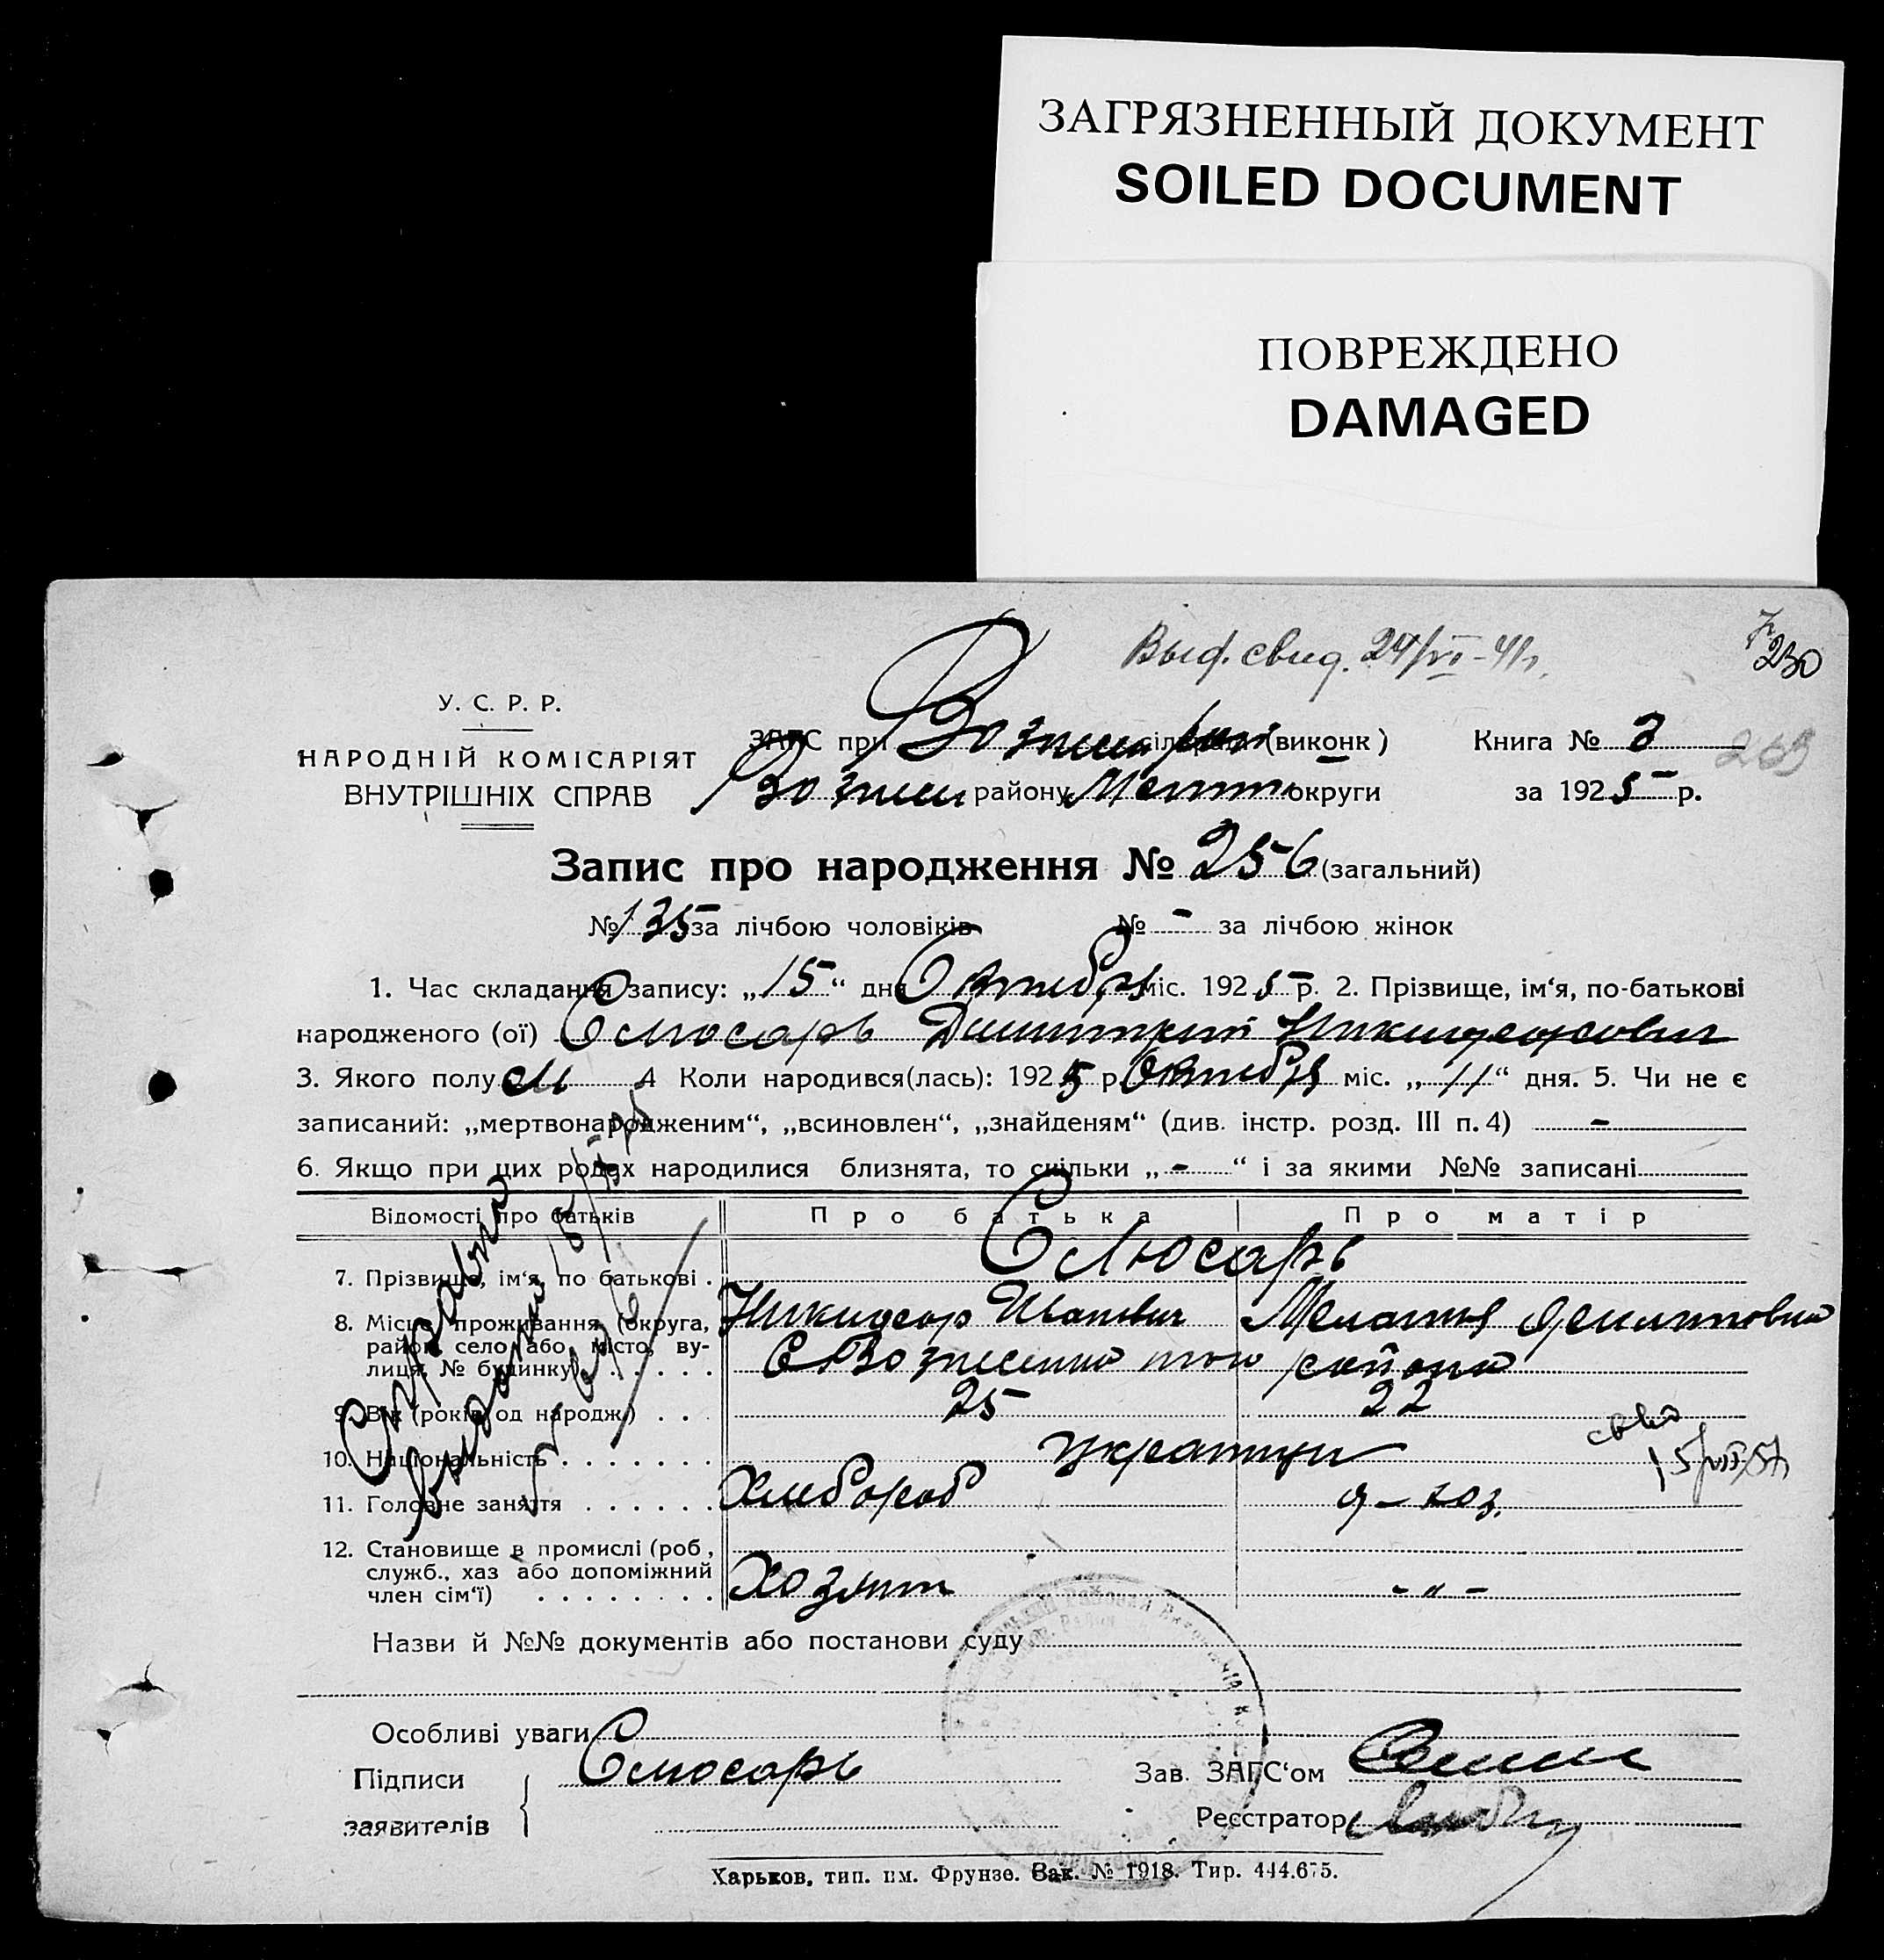 ЗАГРЯЗНЕННЫЙ ДОКУМЕНТ
SOILED DOCUMENT
ПОВРЕЖДЕНО
DAMAGED
Выд. свид. 24/VI-41г.
230
У. С. Р. Р.
НАРОДНІЙ КОМІСАРІЯТ
ВНУТРІШНІХ СПРАВ
ЗАГС при (виконк)
Книга № 3
269
району округи
за 1925 р.
Запис про народження № 256 (загальний)
№ 135 за лічбою чоловіків № - за лічбою жінок
1. Час складання запису: „15“ дня Октября міс. 1925 р. 2. Прізвище, ім‘я, по-батькові
народженого (ої) Слюсарь Димитрий Никифорович
3. Якого полу м 4 Коли народився(лась): 1925 р. Октября міс. „11“ дня. 5. Чи не є
записаний: „мертвонародженим“, „всиновлен“, „знайденям“ (див. інстр. розд. III п. 4) -
6. Якщо при цих родах народилися близнята, то скільки „-“ і за якими №№ записані
Відомості про батьків Про батька Про матір
Слюсарь
7. Прізвище, ім‘я, по батькові .
Никифор Иванович Мелания Филипповна
8. Місце проживання (округа,
район, село або місто, ву-
лиця, № будинку) . . . . . .
С Вознесенка того района
9. Вік (років од народж.) . . . 25 22
10. Національність . . . . . . . украинцы
11. Головне заняття . . . . . . Хлебороб д-хоз.
свид
15/VII-57
12. Становище в промислі (роб.,
служб., хаз або допоміжний
член сім‘ї) . . . . . . . . Хозяин - „ -
Справка
выдана
Назви й №№ документів або постанови суду
Особливі уваги
Підписи
заявителів
Слюсарь
Зав. ЗАГС‘ом
Реєстратор
Харьков, тип. им. Фрунзе. Зак. № 1918. Тир. 444.675.